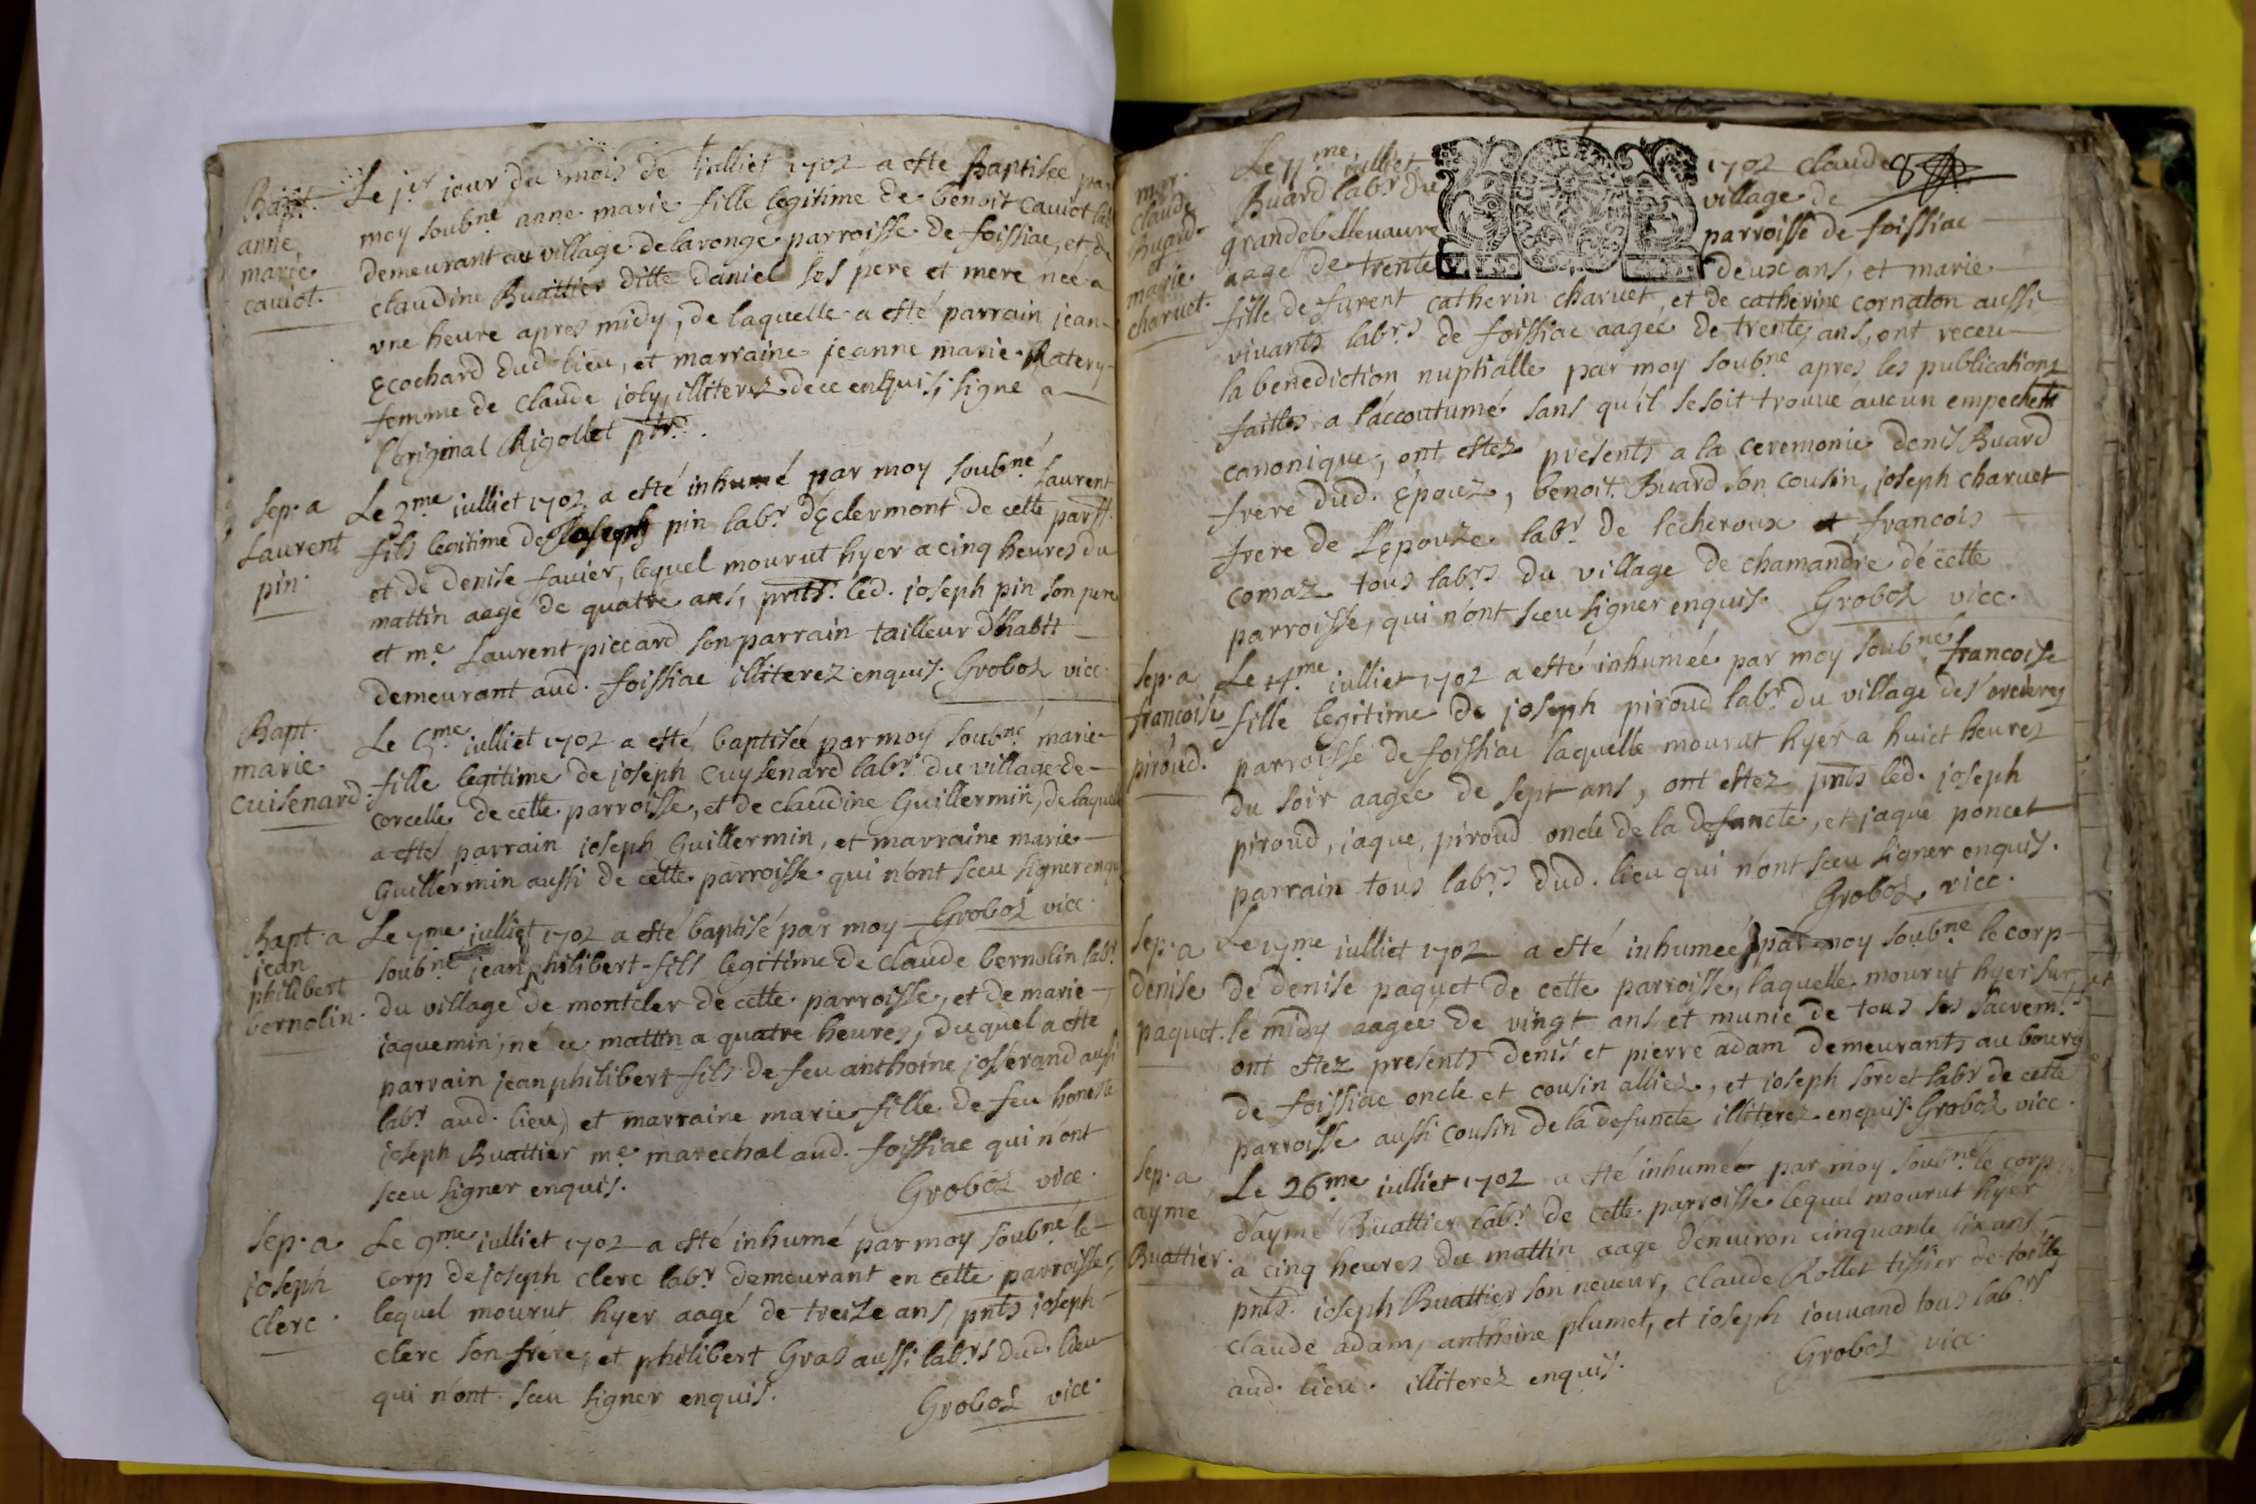 Bapt.
anne
marie
cauiot.
Le jer iour du mois de iulliet 1702 a esté baptisee par
moy soubne anne marie fille legitime de benoit cauiot labr
demeurant au village delaronge parroisse de foissiac, et de
claudine Buattier ditte daniel ses pere et mere née a
vne heure apres midy, de laquelle a esté parrain jean
Ecochard dud. lieu, et marraine jeanne marie Ratery
femme de claude joly, illiterez de ce enquis, signe a
l'original Rigollet ptre.
sep. a
Laurent
pin.
Le 3me iulliet 1702 a esté inhumé par moy soubné Laurent
fils legitime de Joseph pin labr d'Eclermont de cette parsse.
et de denise favier, lequel mourut hyer a cinq heures du
mattin aagé de quatre ans, pnts. led. joseph pin son pere
et me Laurent piccard son parrain tailleur d'habit
demeurant aud. foissiac illiterez enquis. Groboz vice.
Bapt.
marie
Cuisenard.
Le 5me iulliet 1702 a esté baptisée par moy soubné marie
fille legitime de joseph Cuysenard labr. du village de
corcelle de cette parroisse, et de claudine Guillermin, de laquelle
a esté parrain joseph Guillermin, et marraine marie
Guillermin aussi de cette parroisse qui n'ont sceu signer enquis
Groboz vice.
Bapt. a
jean
philibert
bernolin.
Le 7me iulliet 1702 a esté baptisé par moy
soubne jean philibert fils legitime de claude bernolin labr
du village de montcler de cette parroisse, et de marie
jaquemin, né ce mattin a quatre heures, duquel a esté
parrain jean philibert fils de feu anthoine joserand aussi
labr aud. lieu, et marraine marie fille de feu honeste
joseph Buattier me marechal aud. foissiac qui n'ont
sceu signer enquis. Groboz vice.
sep. a
joseph
clerc.
Le 9me iulliet 1702 a esté inhumé par moy soubné le
corp de joseph clerc labr demeurant en cette parroisse,
lequel mourut hyer aagé de treize ans, pnts joseph
clerc son frere, et philibert Gras aussi labrs dud. lieu
qui n'ont sceu signer enquis. Groboz vice.
mar.
claude
buard
et
marie
charuet.
Le 11me iulliet 1702 claude 8
Buard labr du village de
grandebelleuaure parroisse de foissiac
aagé de trente deux ans, et marie
fille de furent catherin charuet, et de catherine cornaton aussi
vivants labrs de foissiac aagée de trente ans, ont receu
la benediction nuptialle par moy soubne apres les publications
faittes a l'accoutumé sans qu'il se soit trouué aucun empechemt
canonique, ont estez presents a la ceremonie denis Buard
frere dud. Epouz, benoit Buard son cousin, joseph charuet
frere de l'Epouze labr de lecheroux et francois
comaz tous labrs du village de chamandre de cette
parroisse, qui n'ont sceu signer enquis. Groboz vice.
sep. a
francoise
piroud.
Le 14me iulliet 1702 a esté inhumée par moy soubné francoise
fille legitime de joseph piroud labr du village des orcierez
parroisse de foissiac laquelle mourut hyer a huict heures
du soir aagée de sept ans, ont estez pnts led. joseph
piroud, jaque piroud oncle de la defuncte, et jaque poncet
parrain tous labrs dud. lieu qui n'ont sceu signer enquis.
Groboz vice.
sep. a
denise
paquet.
Le 17me iulliet 1702 a esté inhumeé par moy soubne le corp
de denise paquet de cette parroisse, laquelle mourut hyer sur
le midy aagee de vingt ans et munie de tous ses sacremts. et
ont estez presents denis et pierre adam demeurants au bourg
de foissiac oncle et cousin alliez, et joseph sordet labr de cette
parroisse aussi cousin de la defuncte illiterez enquis. Groboz vice.
sep. a
ayme
Buattier.
Le 26me iulliet 1702 a esté inhumé par moy soubne le corp
d'aymé Buattier labr de cette parroisse lequel mourut hyer
a cinq heures du mattin aage d'enuiron cinquante six ans,
pnts. joseph Buattier son neueur, claude Rollet tissier de toille
claude adam, anthoine plumet, et joseph jouuand tous labrs
aud. lieu. illiterez enquis. Groboz vice.